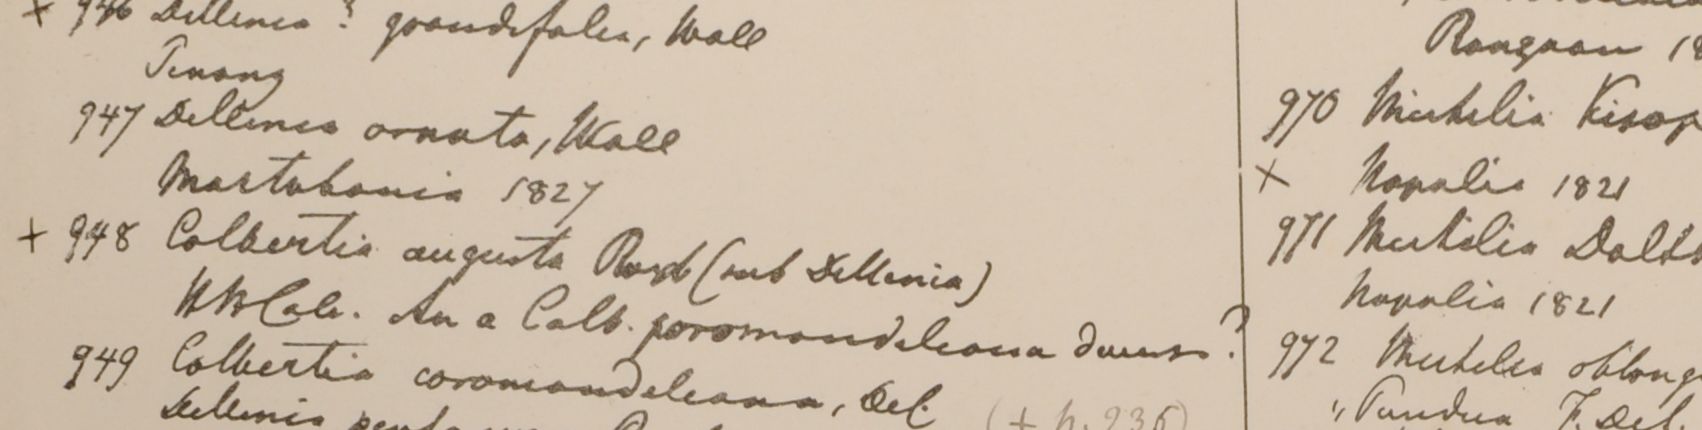 + 946 Dillenia ? grandifolia, Wall
Penang
947 Dillenia ornata, Wall
Martabania 1827
+ 948 Colbertia augusta Roxb (sub Dillenia)
HBCalc. An a Colb. coromandeleana diversa ?
949 Colbertia coromandeleana, Del.
Dillenia
(+ p. 236)
Rangoan 18
970 Michelia Kisop
+ Napalia 1821
971 Michelia Dolts
Napalia 1821
972 Michelia oblong
" Pundua F. Del.